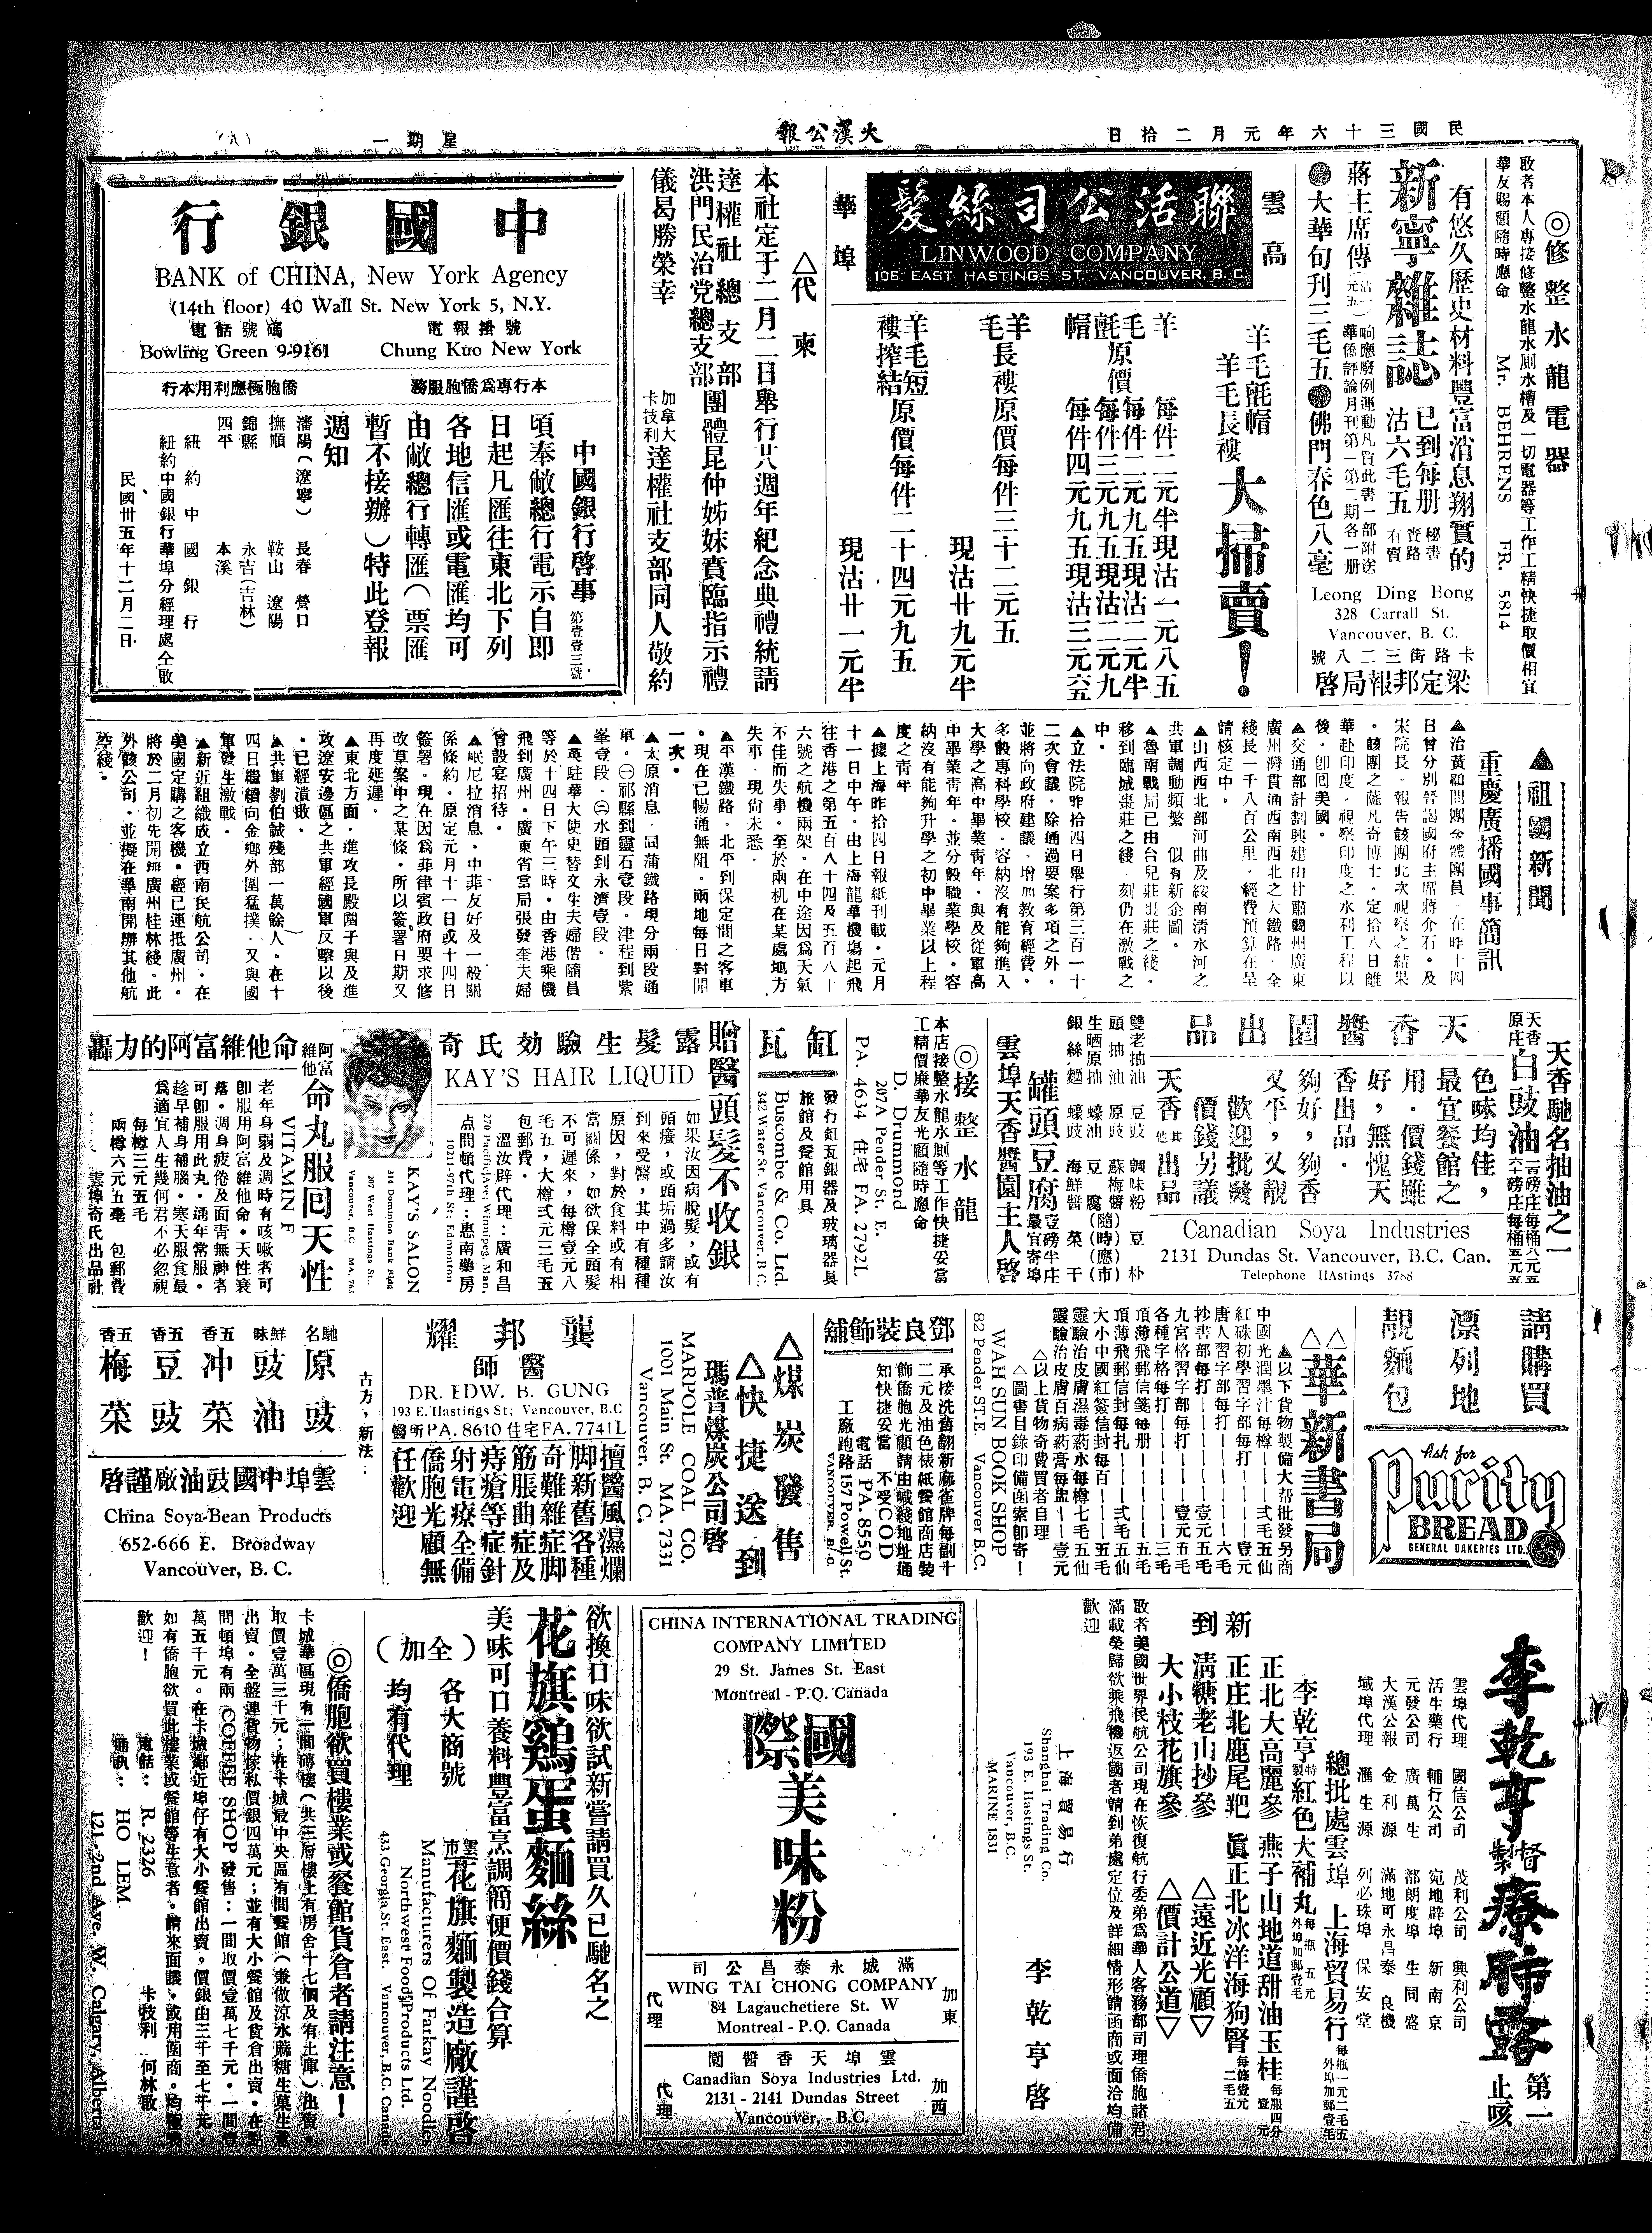 民國三十六年元月二拾日
大漢公報
星期一
（八）
◎修整水龍電器
敢者本人專接修整水龍水厠水槽及一切電器等工作工精快捷取價相宜
華友賜顧隨時應命 Mr. BEHRENS FR. 5814
有悠久歷史材料豐富消息翔實的
新寧雜誌
已到每册
沽六毛五
蔣主席傳
●大華旬刊三毛五●佛門春色八毫
Leong Ding Bong
328 Carrall St.
Vancouver, B. C.
卡路街三二八號
梁定邦報局啓
雲高
華埠
聯活公司絲髮
LINWOOD COMPANY
106 EAST HASTINGS ST. VANCOUVER, B. C.
羊毛氈帽
羊毛長褸
大掃賣！
羊毛氈帽
原價
每件二元半現沽一元八五
每件二元九五現沽二元半
每件三元九五現沽二元九
每件四元九五現沽三元六五
羊毛長褸原價每件三十二元五
現沽廿九元半
羊毛短褸搾結原價每件二十四元九五
現沽廿一元半
△代柬
本社定于二月二日舉行廿八週年紀念典禮統請
達權社總支部
洪門民治党總支部
團體昆仲姊妹賁臨指示禮
儀曷勝榮幸
加拿大
卡技利
達權社支部同人敬約
中國銀行
BANK of CHINA, New York Agency
(14th floor) 40 Wall St. New York 5, N.Y.
電報掛號
Chung Kuo New York
電話號碼
Bowling Green 9-9161
本行專爲僑胞服務
僑胞極應利用本行
中國銀行啓事 第壹壹三號
頃奉敝總行電示自即
日起凡匯往東北下列
各地信匯或電匯均可
由敝總行轉匯（票匯
暫不接辦）特此登報
週知
瀋陽（遼寧） 長春 營口
撫順 鞍山 遼陽
錦縣 永吉（吉林）
四平 本溪
紐約中國銀行
紐約中國銀行華埠分經理處仝啟
民國卅五年十二月二日
▲祖國新聞
重慶廣播國事簡訊
日曾分別晉謁國府主席蔣介石。及
宋院長。報告該團此次視察之結果
。該團之薩凡奇博士。定拾八日離
華赴印度。視察印度之水利工程以
後。卽囘美國。
▲交通部計劃興建由甘肅蘭州廣東
廣州灣貫通西南西北之大鐵路。全
綫長一千八百公里。經費預算在呈
請核定中。
▲山西西北部河曲及綏南清水河之
共軍調動頻繁 似有新企圖。
▲魯南戰局已由台兒莊棗莊之綫。
移到臨城棗莊之綫 刻仍在激戰之
中。
▲立法院昨拾四日舉行第三百一十
二次會議。除通過要案多項之外。
並將向政府建議。增加教育經費。
多設專科學校。容納沒有能夠進入
大學之高中畢業青年。與及從軍高
中畢業青年。並分設職業學校。容
納沒有能夠升學之初中畢業以上程
度之青年
▲據上海昨拾四日報紙刊載。元月
十一日中午。由上海龍華機塲起飛
往香港之第五百八十四及五百八十
六號之航機兩架。在中途因爲天氣
不佳而失事。至於兩机在某處地方
失事。現尙未悉。
▲平漢鐵路。北平到保定間之客車
。現在已暢通無阻。兩地每日對開
一次。
▲太原消息。同蒲鐵路現分兩段通
車。㊀祁縣到靈石壹段。津程到紫
峯壹段。㊁水頭到永濟壹段。
▲英駐華大使史替文生夫婦偕隨員
等於十四日下午三時。由香港乘機
飛到廣州。廣東省當局張發奎夫婦
曾設宴招待。
▲岷尼拉消息。中菲友好及一般關
係條約。原定元月十一日或十四日
簽署。現在因爲菲律賓政府要求修
改草案中之某條。所以簽署日期又
再度延遲。
▲東北方面。進攻長殿圈子與及進
攻遼安邊區之共軍經國軍反擊以後
。已經潰敗。
▲共軍劉伯誠殘部一萬餘人。在十
四日繼續向金鄉外圍猛撲。又與國
軍發生激戰。
▲新近組織成立西南民航公司。在
美國定購之客機。經已運抵廣州。
將於二月初先開班廣州桂林綫。此
外該公司。並擬在華南開辦其他航
空綫。
天香馳名抽油之一
天香原庄白豉油
天香醬園出品
色味均佳，
最宜餐館之
用。價錢雖
好，無愧天
香出品。
夠好，夠香
又平，又靚
歡迎批發
價錢另議
天香其他出品
Canadian Soya Industries
2131 Dundas St. Vancouver, B.C. Can.
Telephone HAstings 3788
雙老抽油 豆豉 調味粉 豆朴
頭抽油 原豉 蘇梅醬（隨）
生晒原抽 蠔油 豆腐（時應市）
銀絲麵 蠔豉 海鮮醬 菜干
罐頭豆腐
雲埠天香醬園主人啓
◎接整水龍
本店接整水龍水厠等工作快捷妥當
工精價廉華友光顧隨時應命
D. Drummond
207A Pender St. E.
PA. 4634 住宅 FA. 2792L
缸瓦
發行缸瓦銀器及玻璃器具
旅館及餐館用具
Buscombe & Co. Ltd.
342 Water St. Vancouver, B.C.
贈醫頭髮不收銀
奇氏効驗生髮露
KAY'S HAIR LIQUID
如果汝因病脫髮，或有
頭癢，或頭垢過多請汝
到來受醫，其中有種種
原因，對於食料或有相
當關係，如欲保全頭髮
不可遲來，每樽壹元八
毛五，大樽弍元三毛五
包郵費。
溫汝辟代理：廣和昌
270 Pacific Ave; Winnipeg, Man.
点問頓代理：惠南藥房
10211-97th St; Edmonton
KAY'S SALON
314 Dominion Bank Bldg
207 West Hastings St.,
Vancouver, B.C.
命他維富阿的力轟
阿富維他命丸服回天性
老年身弱及週時有咳嗽者可
卽服用阿富維他命。天性衰
落。凋身疲倦及面青無神者
可卽服用此丸。通年常服。
趁早補身補腦。寒天服食最
爲適宜人生幾何君不必忽視
VITAMIN F
每樽三元五毛
兩樽六元五毫 包郵費
雲埠奇氏出品社
請購買
漂列地
靚麵包
Ask for
Purity
BREAD
GENERAL BAKERIES LTD.
△△華新書局
▲以下貨物製備大帮批發另商
中國光潤墨汁每樽——弍毛五仙
紅硃初學習字部每打——壹元
唐人習字部每打——六毛
抄書部每打——壹元五毛
九宮格習字部每打——壹元五毛
各種字格每打——三毛
頂薄飛郵信箋每册——五毛
頂薄飛郵信封每扎——弍毛五仙
大小中國紅簽信封每百——五毛
靈驗治皮膚濕毒葯水每樽七毛五仙
靈驗治皮膚百病葯膏每盅——壹元
△以上貨物奇費買者自理
△圖書目錄印備函索卽寄！
WAH SUN BOOK SHOP
82 Pender ST.E. Vancouver B.C.
鄧良裝飾舖
承接洗舊翻新麻雀牌每副十
二元及油色裱紙餐館商店裝
飾僑胞光顧請由喊綫地址通
知快捷妥當 不受COD
電話 PA. 8550
工廠跑路 157 Powell St.
VANCOUVER, B.C.
△煤炭發售
△快捷送到
瑪普煤炭公司啓
MARPOLE COAL CO.
1001 Main St. MA. 7331
Vancouver, B. C.
龔邦耀
醫師
DR. EDW. B. GUNG
193 E. Hastings St; Vancouver, B.C
醫所PA. 8610 住宅FA. 7741L
擅醫風濕爛
脚新舊各種
奇難雜症脚
筋脹曲症及
痔瘡等症針
射電療全備
僑胞光顧無
任歡迎
古方，新法：
馳名原豉
鮮味豉油
五香冲菜
五香豆豉
五香梅菜
雲埠中國豉油廠謹啓
China Soya-Bean Products
652-666 E. Broadway
Vancouver, B. C.
李乾亨督製療肺露 第一止咳
雲埠代理 國信公司 茂利公司 興利公司
活生藥行 輔行公司 宛地辟埠 新南京
元發公司 廣萬生 都朗度埠 生同盛
大漢公報 金利源 滿地可永昌泰 良機
域埠代理 滙生源 列必珠埠 保安堂
總批處雲埠 上海貿易行 每瓶一元二毛五 外埠加郵壹毛
李乾亨特製紅色大補丸 每瓶五元 外埠加郵壹毛
新到
正北大高麗參 燕子山地道甜油玉桂
正庄北鹿尾羓 眞正北冰洋海狗腎 每條壹元二毛五
清糖老山抄參 △遠近光顧▽
大小枝花旗參 △價計公道▽
敢者美國世界民航公司現在恢復航行委弟爲華人客務部司理僑胞諸君
滿載榮歸欲乘飛機返國者請到弟處定位及詳細情形請函商或面洽均備
歡迎
上海貿易行
Shanghai Trading Co.
193 E. Hastings St.
Vancouver, B.C.
MARINE 1831
李乾亨啓
CHINA INTERNATIONAL TRADING
COMPANY LIMITED
29 St. James St. East
Montreal - P.Q. Canada
國際
美味粉
滿城永泰昌公司
WING TAI CHONG COMPANY
84 Lagauchetiere St. W
Montreal - P.Q. Canada
加東
代理
雲埠天香醬園
Canadian Soya Industries Ltd.
2131 - 2141 Dundas Street
Vancouver, - B.C.
加西
代理
欲換口味欲試新嘗請買久已馳名之
花旗鷄蛋麵絲
美味可口養料豐富烹調簡便價錢合算
（全加）
各大商號
均有代理
雲市花旗麵製造廠謹啓
Manufacturers Of Farkay Noodles
Northwest Food Products Ltd.
433 Georgia St. East. Vancouver, B.C. Canada
◎僑胞欲買樓業或餐館貨倉者請注意！
卡城華區現有一間磚樓（共三層樓上有房舍十七個及有土庫）出賣。
取價壹萬三千元；在卡城最中央區有間餐館（兼做凉水蔴糖生菓生意
出賣。全盤連貨物傢私價銀四萬元；並有大小餐館及貨倉出賣。在點
問頓埠有兩 COFFEE SHOP 發售：一間取價壹萬七千元。一間壹
萬五千元。在卡城鄰近埠仔有大小餐館出賣，價銀由三千至七千元。
如有僑胞欲買此樓業或餐館等生意者。請來面議。或用函商。均極歡
歡迎！
電話： R. 2326
通訊： HO LEM
卡技利 何林敬
121-2nd Ave. W. Calgary, Alberta